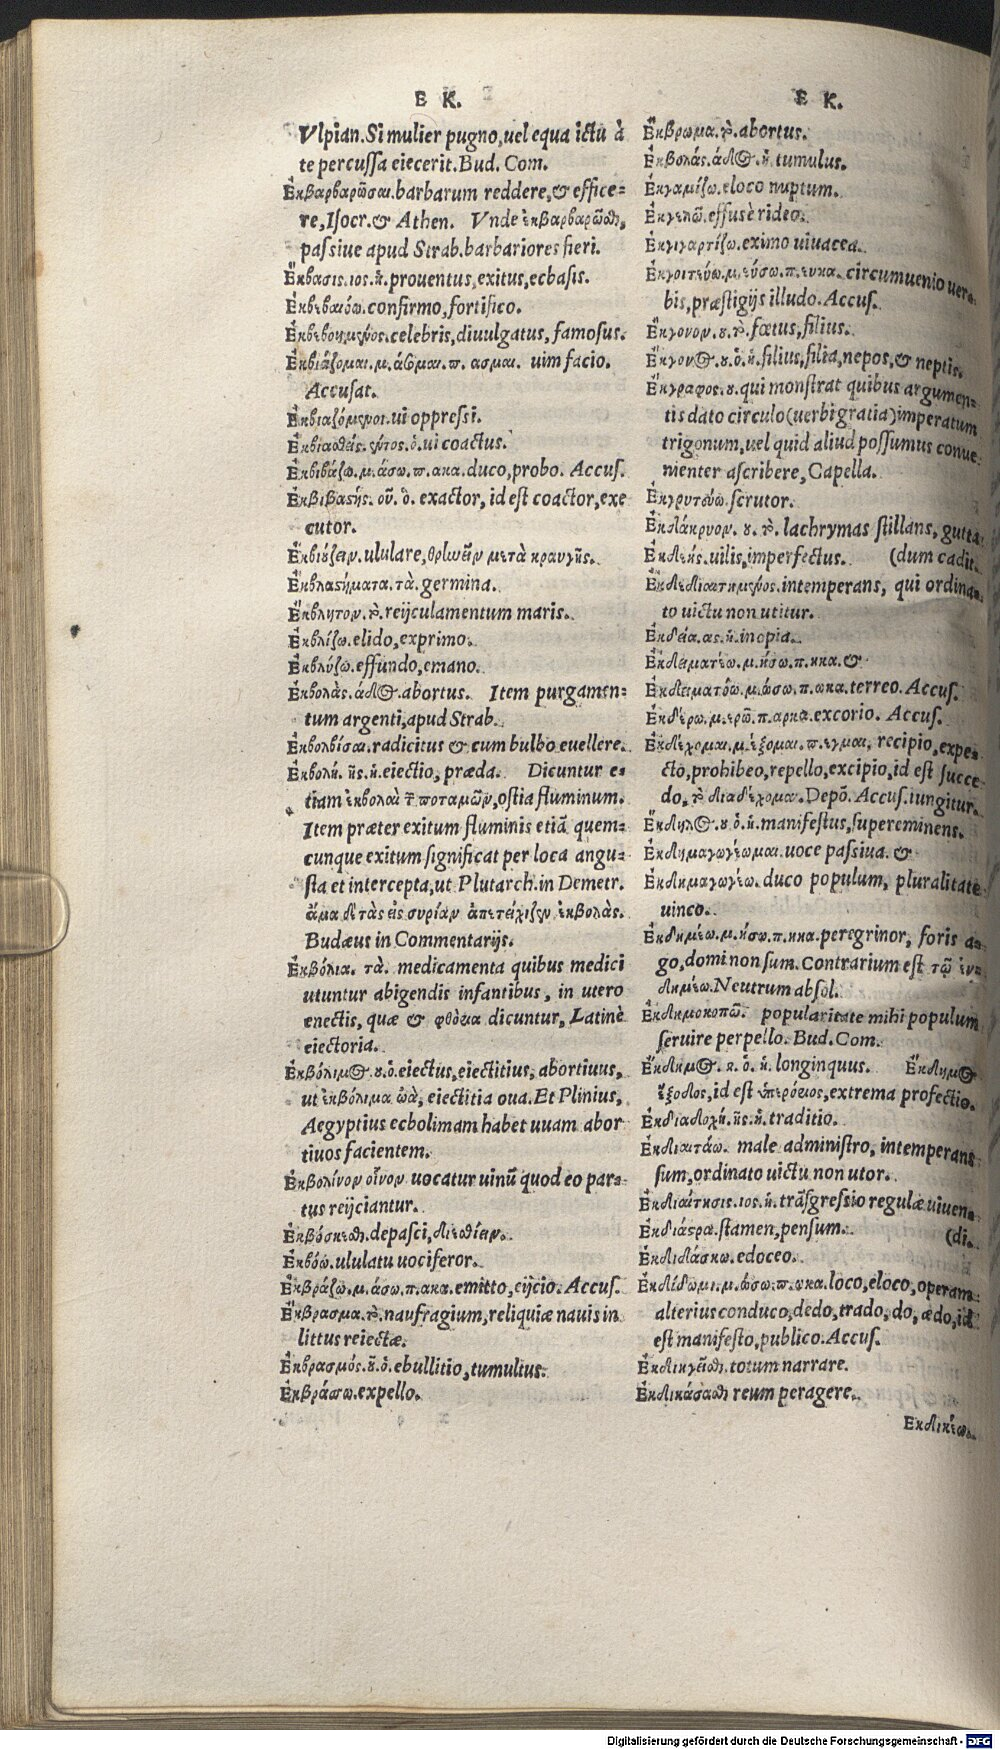 E K.
Vlpian. Si mulier pugno, uel equa ictu à
te percussa eiecerit. Bud. Com.
Ἐκβαρβαρῶσαι. barbarum reddere, & effice=
re, Isocr. & Athen. Vnde ἐκβαρβαρῶσθαι,
passiue apud Strab. barbariores fieri.
Ἔκβασις. ιος. ἡ. prouentus, exitus, ecbasis.
Ἐκβεβαιόω. confirmo, fortifico.
Ἐκβεβοημένος. celebris, diuulgatus, famosus.
Ἐκβιάζομαι. μ. άσομαι. π. ασμαι. uim facio.
Accusat.
Ἐκβιαζόμενοι. ui oppressi.
Ἐκβιασθείς. έντος. ὁ. ui coactus.
Ἐκβιβάζω. μ. άσω. π. ακα. duco, probo. Accus.
Ἐκβιβαστής. οῦ. ὁ. exactor, id est coactor, exe
cutor.
Ἐκβιύζειν. ululare, θρηνεῖν μετὰ κραυγῆς.
Ἐκβλαστήματα. τὰ. germina.
Ἔκβλητον. τὸ. reijculamentum maris.
Ἐκβλίζω. elido, exprimo.
Ἐκβλύζω. effundo, emano.
Ἐκβολὰς. άδος. abortus. Item purgamen=
tum argenti, apud Strab.
Ἐκβολβίσαι. radicitus & cum bulbo euellere.
Ἐκβολή. ῆς. ἡ. eiectio, præda. Dicuntur e=
tiam ἐκβολαὶ τῶν ποταμῶν, ostia fluminum.
Item præter exitum fluminis etiã quem=
cunque exitum significat per loca angu=
sta et intercepta, ut Plutarch. in Demetr.
ἅμα δὲ τὰς εἰς συρίαν ἀπετείχιζεν ἐκβολὰς.
Budæus in Commentarijs.
Ἐκβόλια. τὰ. medicamenta quibus medici
utuntur abigendis infantibus, in utero
enectis, quæ & φθόρια dicuntur, Latinè
eiectoria.
Ἐκβόλιμος. ου. ὁ. eiectus, eiectitius, abortiuus,
ut ἐκβόλιμα ὠὰ, eiectitia oua. Et Plinius,
Aegyptius ecbolimam habet uuam abor
tiuos facientem.
Ἐκβολίνον οἶνον uocatur uinũ quod eo par=
tus reijciantur.
Ἐκβόσκεσθαι. depasci, διεσθίειν.
Ἐκβόω. ululatu uociferor.
Ἐκβράζω. μ. άσω. π. ακα. emitto, eijcio. Accus.
Ἔκβρασμα. τὸ. naufragium, reliquiæ nauis in
littus reiectæ.
Ἐκβρασμός. οῦ. ὁ. ebullitio, tumultus.
Ἐκβράσσω. expello.
E K.
Ἔκβρωμα. τὸ. abortus.
Ἐκβολάς. άδος. ἡ. tumulus.
Ἐκγαμίζω. eloco nuptum.
Ἐκγελῶ. effusè rideo.
Ἐκγιγαρτίζω. eximo uiuacea.
Ἐκγοιτεύω. μ. εύσω. π. ευκα. circumuenio uer=
bis, præstigijs illudo. Accus.
Ἔκγονον. ου. τὸ. fœtus, filius.
Ἔκγονος. ου. ὁ. ἡ. filius, filia, nepos, & neptis.
Ἔκγραφος. ου. qui monstrat quibus argumen=
tis dato circulo (uerbi gratia) imperatum
trigonum, uel quid aliud possumus conue
nienter ascribere, Capella.
Ἐκγρυτεύω. scrutor.
Ἐκδάκρυον. ου. τὸ. lachrymas stillans, gutta
Ἐκδεής. uilis, imperfectus. (dum cadit.
Ἐκδεδιαιτημένος. intemperans, qui ordina=
to uictu non utitur.
Ἐκδεία. ας. ἡ. inopia.
Ἐκδειματέω. μ. ήσω. π. ηκα. &
Ἐκδειματόω. μ. ώσω. π. ωκα. terreo. Accus.
Ἐκδέρω. μ. ερῶ. π. αρκα. excorio. Accus.
Ἐκδέχομαι. μ. έξομαι. π. εγμαι. recipio, expe=
cto, prohibeo, repello, excipio, id est succe
do, τὸ διαδέχομαι. Depõ. Accus. iungitur.
Ἔκδηλος. ου. ὁ. ἡ. manifestus, supereminens.
Ἐκδημαγωγέομαι. uoce passiua. &
Ἐκδημαγωγέω. duco populum, pluralitate
uinco.
Ἐκδημέω. μ. ήσω. π. ηκα. peregrinor, foris a=
go, domi non sum. Contrarium est τῷ ἐν=
δημέω. Neutrum absol.
Ἐκδημοκοπῶ. popularitate mihi populum
seruire perpello. Bud. Com.
Ἔκδημος. ου. ὁ. ἡ. longinquus. Ἔκδημος
ἔξοδος, id est ὑπερόριος, extrema profectio.
Ἐκδιαδοχή. ῆς. ἡ. traditio.
Ἐκδιαιτάω. male administro, intemperans
sum, ordinato uictu non utor.
Ἐκδιαίτησις. ιος. ἡ. trãsgressio regulæ uiuen=
Ἐκδιάστρα. stamen, pensum. (di.
Ἐκδιδάσκω. edoceo.
Ἐκδίδωμι. μ. ώσω. π. ωκα. loco, eloco, operam
alterius conduco, dedo, trado, do, ædo, id
est manifesto, publico. Accus.
Ἐκδιηγεῖσθαι. totum narrare.
Ἐκδικάσασθαι reum peragere.
Ἐκδικέω.
Digitalisierung gefördert durch die Deutsche Forschungsgemeinschaft - DFG